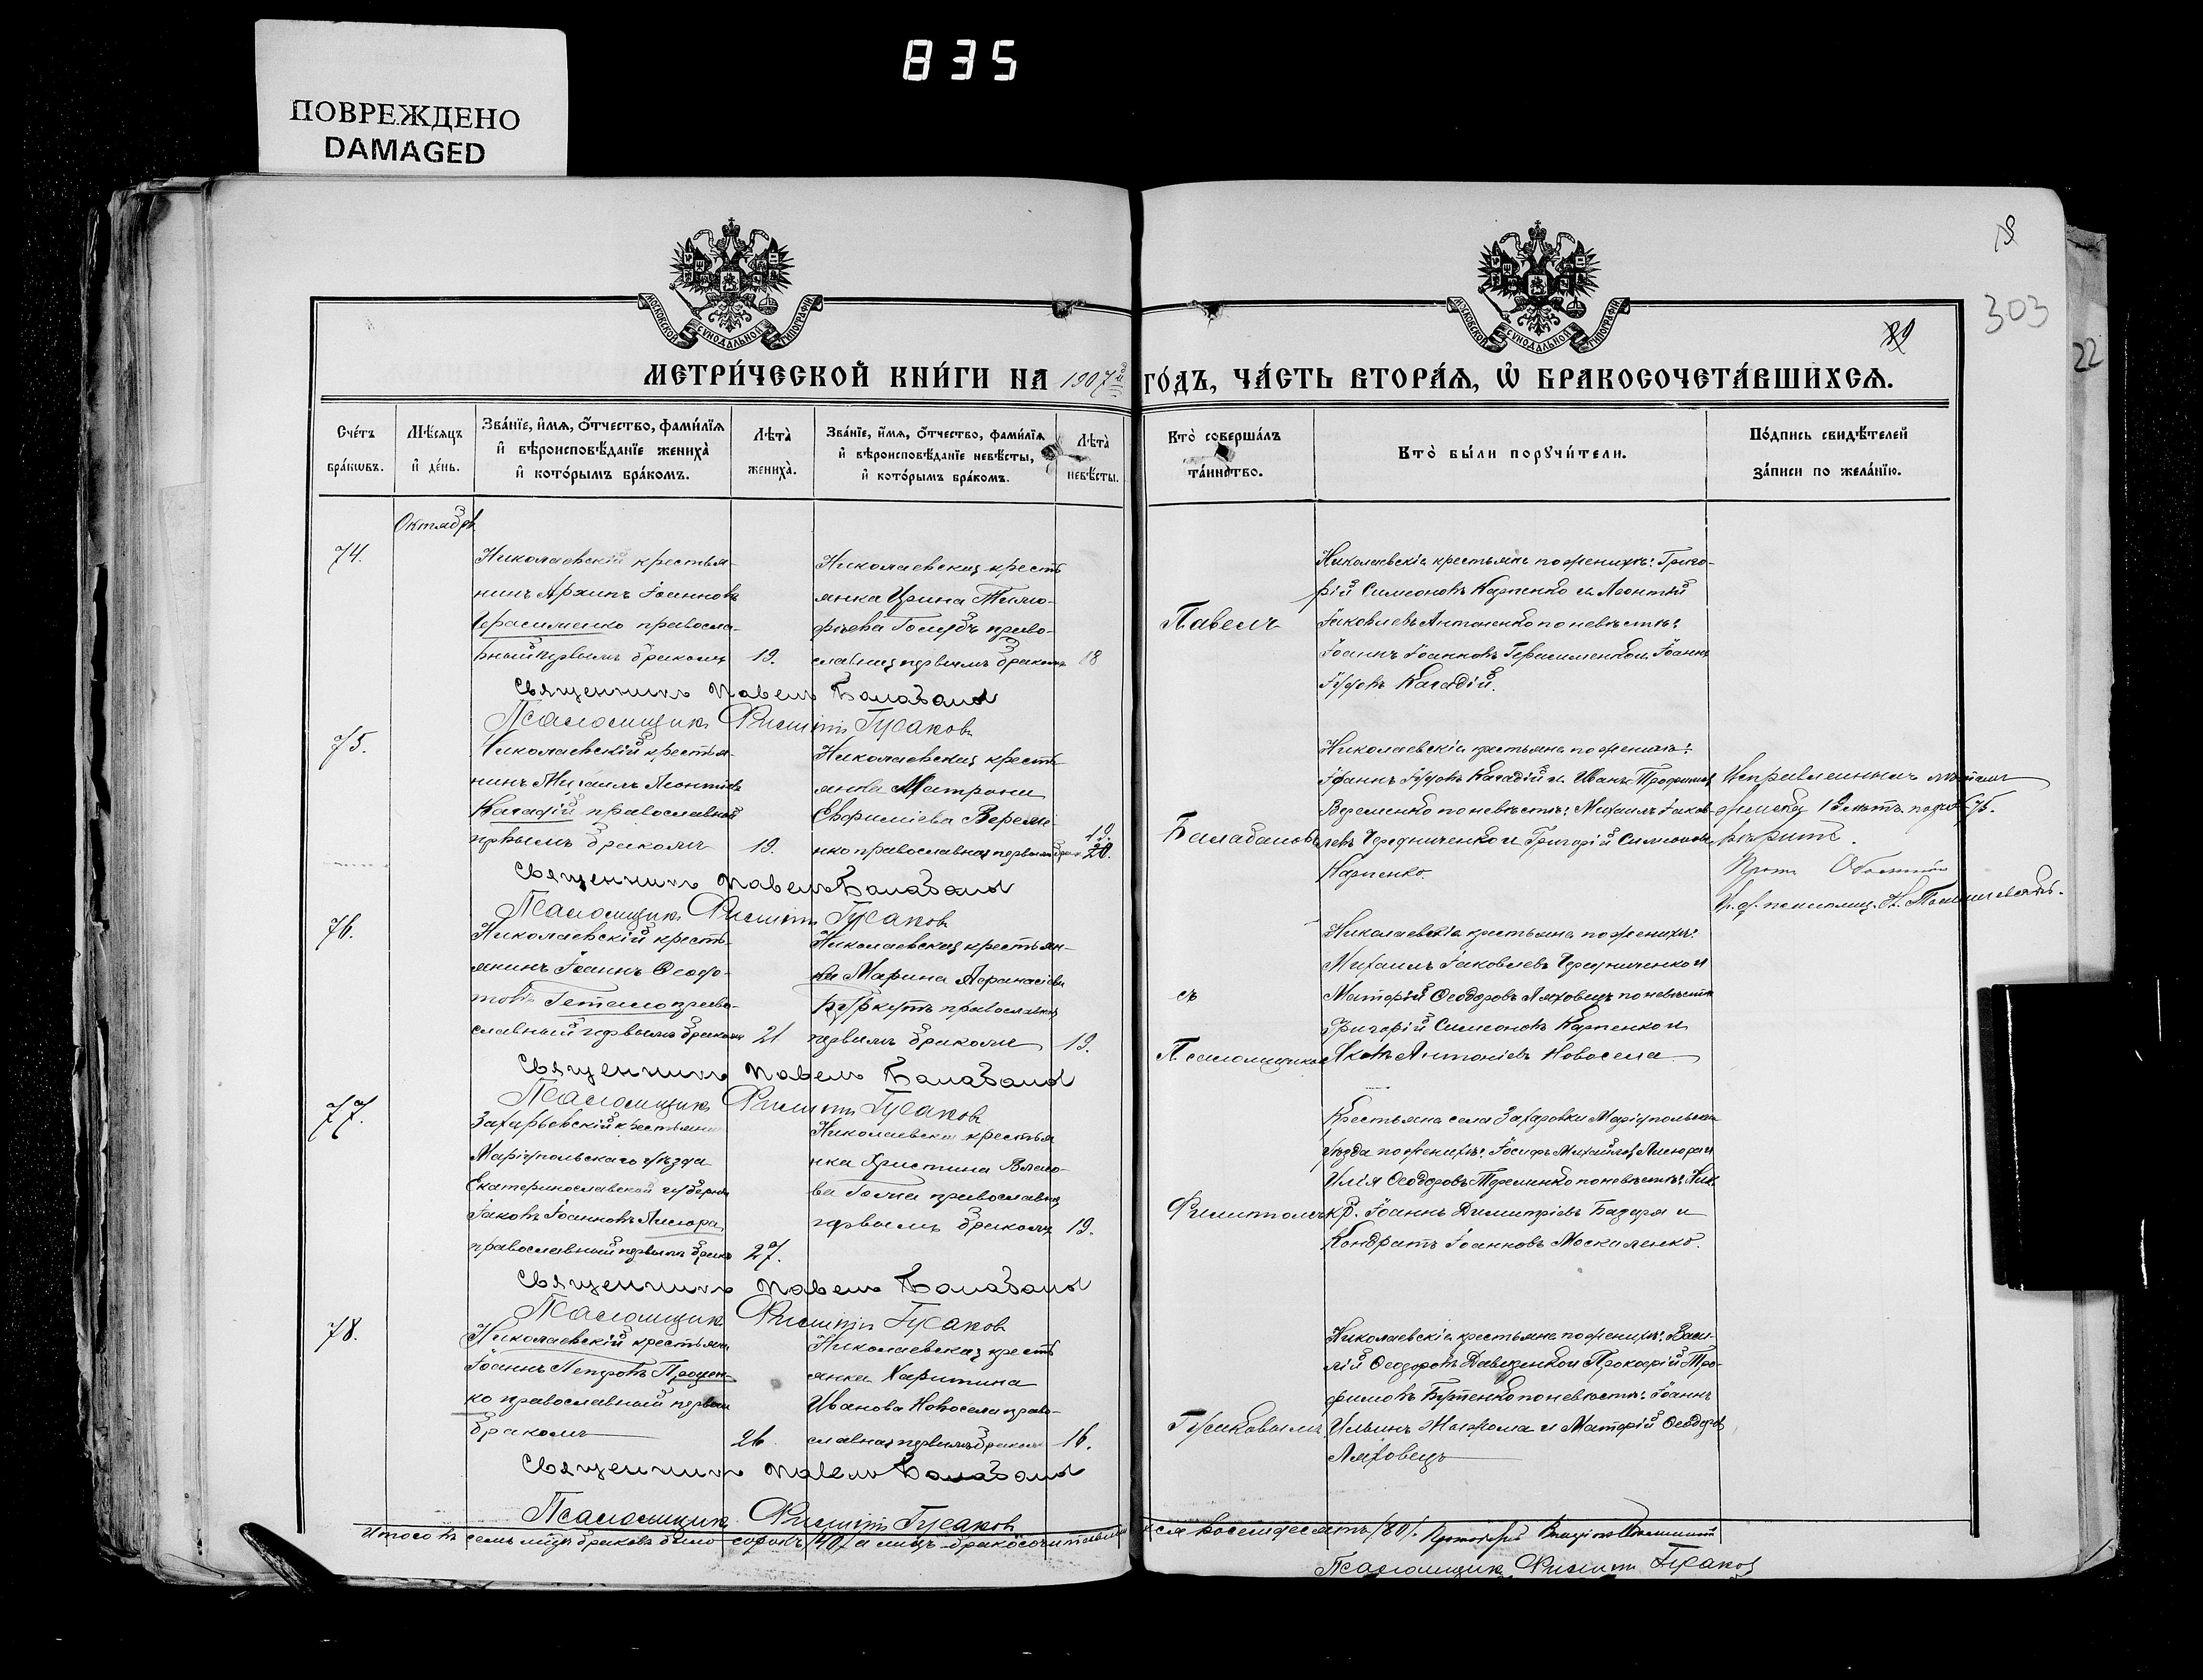 835
ПОВРЕЖДЕНО
DAMAGED
18
303
22
МЕТРИ́ЧЕСКОЙ КНИ́ГИ НА 1907й ГО́ДЪ, ЧА́СТЬ ВТОРА́Я, Ѡ БРАКОСОЧЕТА́ВШИХСЯ.
Сче́тъ бра́кѡвъ.
Мѣ́сяцъ и де́нь.
Зва́нїе, и́мя, о́тчество, фами́лїя и вѣроисповѣ́данїе жениха̀ и кото́рымъ бра́комъ.
Лѣта̀ жениха̀.
Зва́нїе, и́мя, о́тчество, фами́лїя и вѣроисповѣ́данїе невѣ́сты, и кото́рымъ бра́комъ.
Лѣта̀ невѣ́сты.
Кто̀ соверша́лъ та́инство.
Кто̀ бы́ли порꙋчи́тели.
По́дпись свидѣ́телей за́писи по жела́нїю.
Октябрь
74.
Николаевскій крестья-
нинъ Архипъ Іоанновъ
Герасименко правосла-
вный первымъ бракомъ
19.
Николаевская кресть
янка Ирина Тимо-
фѣева Голубъ право-
славная первымъ бракомъ
18
Николаевскіе крестьяне по женихѣ: Григо-
рій Симеоновъ Карпенко и Леонтій
Іаковлевъ Антоненко по невѣстѣ:
Іоаннъ Іоанновъ Герасименко и Іоаннъ
Кагадій.
Священникъ Павелъ Балабановъ
Псаломщикъ Филиппъ Гусаковъ
75.
Николаевскій крестья-
нинъ Михаилъ Леонтіевъ
Кагадій православный
первымъ бракомъ
19.
Николаевская кресть-
янка Матрона
Евфиміева Вереме-
нко православная первымъ брак
19.
20.
Николаевскіе крестьяне по женихѣ:
Іоаннъ Кагадій и Иванъ Трофимовъ
Веременко по невѣстѣ: Михаилъ Іаков-
левъ Чередниченко и Григорій Симеоновъ
Карпенко
Исправленнымъ
19 лѣтъ 75.
вѣрить.
Священникъ Павелъ Балабановъ
Псаломщикъ Филиппъ Гусаковъ
76.
Николаевскій кресть-
янинъ Іоаннъ Ѳеофо-
право-
славный первымъ бракомъ
21
Николаевская крестьян-
ка Марина Аѳанасіева
Беркутъ православная
первымъ бракомъ
19.
Николаевскіе крестьяне по женихѣ:
Михаилъ Іаковлевъ Чередниченко и
Ѳеодоровъ Ляховецъ по невѣстѣ
Григорій Симеоновъ Карпенко и
Яковъ Антоніевъ Новосела
Священникъ Павелъ Балабановъ
Псаломщикъ Филиппъ Гусаковъ
77.
Захарьевскій крестьянинъ
Маріупольскаго уѣзда
Екатеринославской губерніи
Іаковъ Іоанновъ
православный первымъ бракомъ
27.
Николаевская крестья
нка Христина Власо-
ва православная
первымъ бракомъ
19.
Крестьяне села Захаровки Маріупольскаго
уѣзда по женихѣ: Іосифъ Михайловъ
Илія Ѳеодоровъ по невѣстѣ: Ник.
кр. Іоаннъ Димитріевъ Бадера и
Кондратъ Іоанновъ Москаленко.
Священникъ Павелъ Балабановъ
Псаломщикъ Филиппъ Гусаковъ
78.
Николаевскій крестьянинъ
Іоаннъ Петровъ Процен-
ко православный первымъ
бракомъ
26
Николаевская кресть
янка Харитина
Иванова Новосела право-
славная первымъ бракомъ
16.
Николаевскіе крестьяне по женихѣ: Васи-
лій Ѳеодоровъ Давиденко и Прокофій Тро-
фимовъ по невѣстѣ: Іоаннъ
Ильинъ и Ѳеодоровъ
Ляховецъ
Священникъ Павелъ Балабановъ
Псаломщикъ Филиппъ Гусаковъ
Павелъ
Балабановъ
съ
Псаломщикомъ
Филиппомъ
Гусаковымъ
Итого въ семъ мѣсяцѣ браковъ было сорокъ /40/ а лицъ бракосочетавшихся восемдесятъ /80/.
Псаломщикъ Филиппъ Гусаковъ